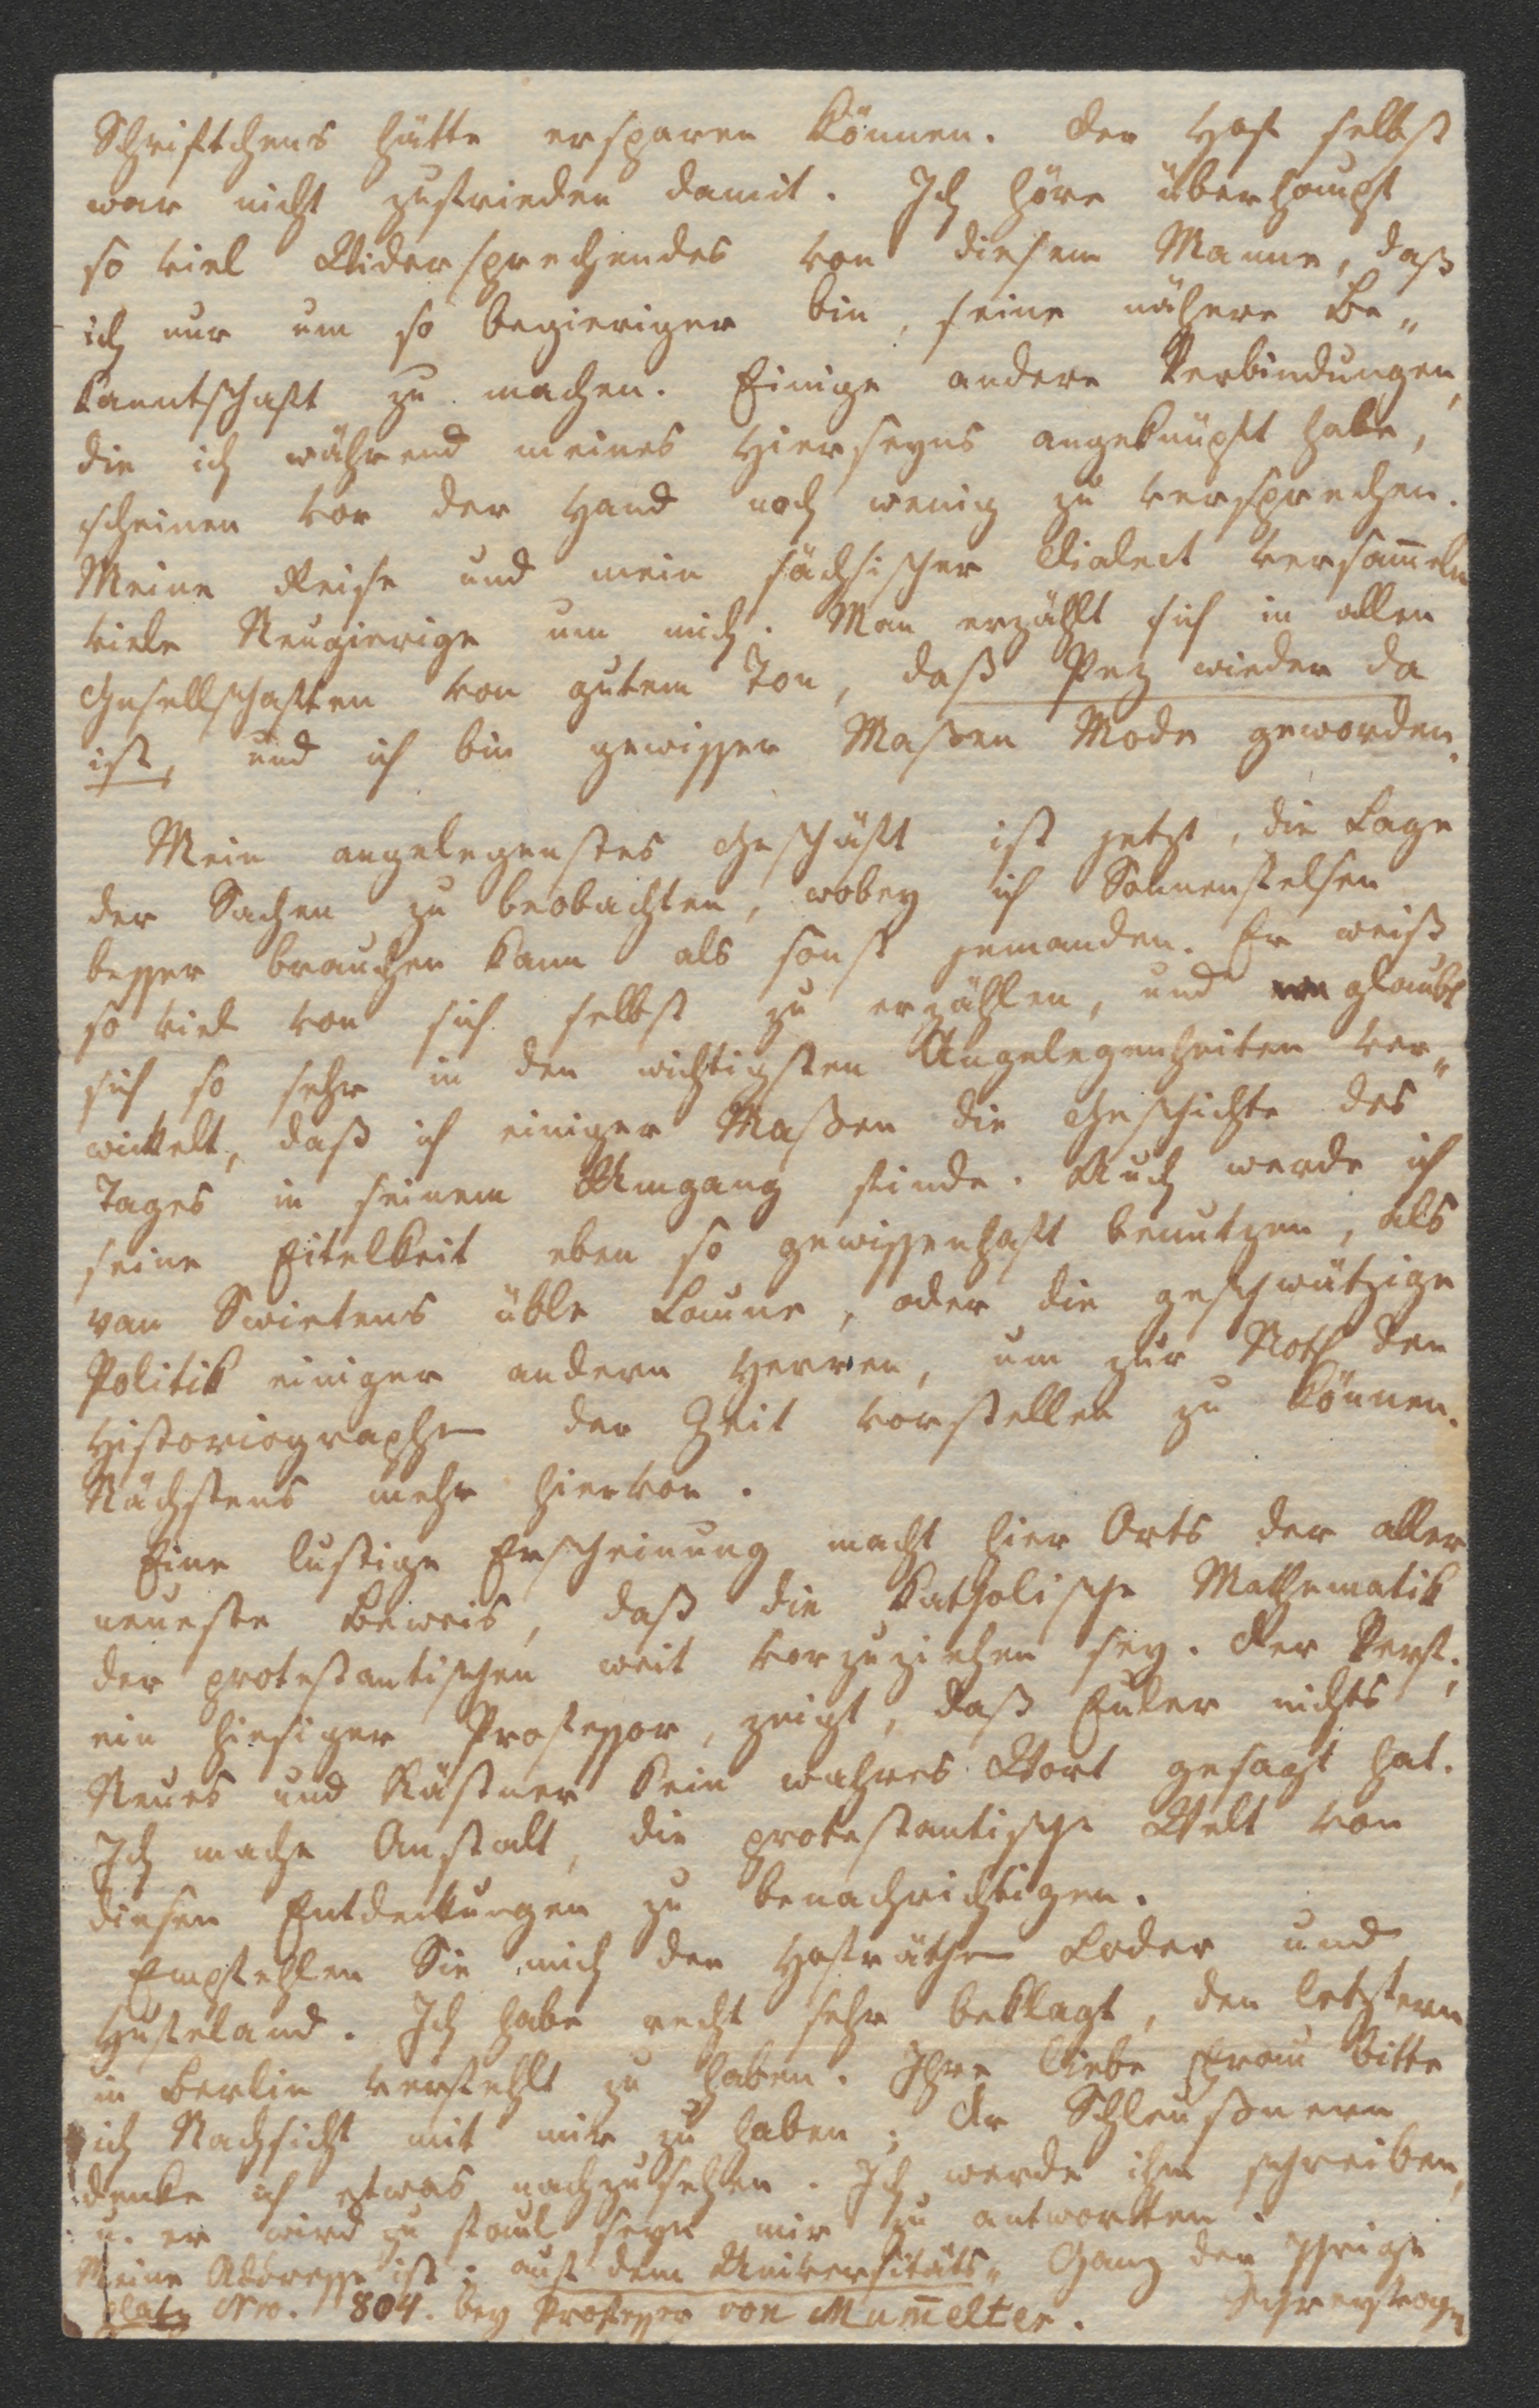 Schriftchens hätte ersparen können. Der Hof selbst
war nicht zufrieden damit. Ich höre überhaupt
so viel Widersprechendes von diesem Manne, daß
ich nur um so begieriger bin, seine nähere Be„
kanntschaft zu machen. Einige andere Verbindungen,
die ich während meines Hierseyns angeknüpft habe,
scheinen vor der Hand noch wenig zu versprechen.
Meine Reise und mein sächsischer Dialect versam̅eln
viele Neugierige um mich. Man erzählt sich in allen
Gesellschaften von gutem Ton, daß Pez wieder da
ist, und ich bin gewisser Maßen Mode geworden.
Mein angelegenstes Geschäft ist jetzt, die Lage
der Sachen zu beobachten, wobey ich Sonnenfelsen
besser brauchen kann als sonst jemanden. Er weiß
so viel von sich selbst zu erzählen, und glaubt
sich so sehr in den wichtigsten Angelegenheiten ver„
wickelt, daß ich einiger Maßen die Geschichte des
Tages in seinem Umgang finde. Auch werde ich
seine Eitelkeit eben so gewissenhaft benutzen, als
van Swietens üble Laune, oder die geschwätzige
Politik einiger andern Herren, um zur Noth den
Historiographen der Zeit vorstellen zu können.
Nächstens mehr hiervon.
Eine lustige Erscheinung macht hier Orts der aller
neueste Beweis, daß die katholische Mathematik
der protestantischen weit vorzuziehen sey. Der Verf.,
ein hiesiger Professor, zeigt, daß Euler nichts
Neues und Kästner kein wahres Wort gesagt hat.
Ich mache Anstalt, die protestantische Welt von
diesen Entdeckungen zu benachrichtigen.
Empfehlen Sie mich den Hofräthen Loder und
Hufeland. Ich habe recht sehr beklagt, den letztern
in Berlin verfehlt zu haben. Ihre liebe Frau bitte
ich Nachsicht mit mir zu haben; Dr Schleußnern
denke ich etwas nachzusehen. Ich werde ihm schreiben,
u. er wird zu faul seyn mir zu antworten.
Meine Addresse ist: auf dem Universitäts„ Ganz der Ihrige
platz Nro. 804. bey Professor von Mum̅elter. Schreyvogel